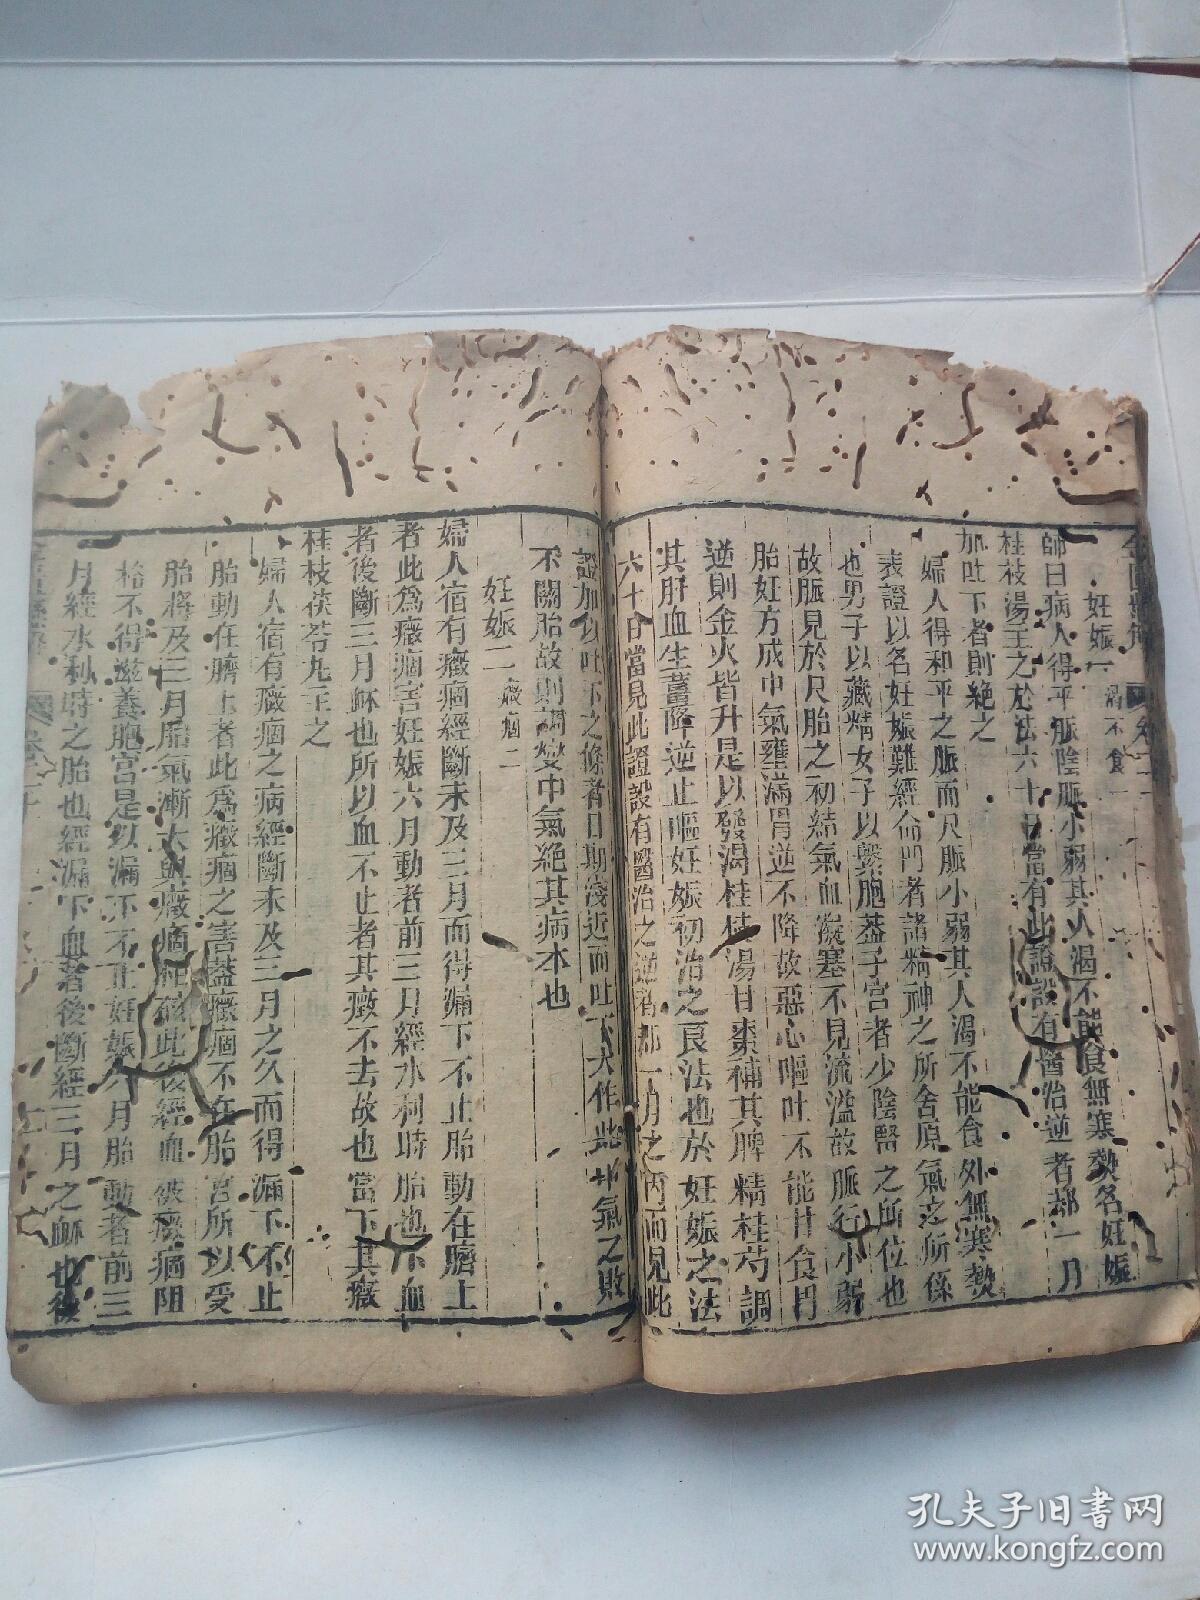 妊娠一 渴不食一
師曰病人得平脈陰脈小弱其人渴不能食無寒熱名妊娠
桂枝湯主之於法六十日當有此證設有醫治逆者却一月
加吐下者則絕之
婦人得和平之脈而尺脈小弱其人渴不能食外無寒熱
表證以名妊娠難經命門者諸精神之所舍原氣之所係
也男子以藏精女子以繫胞蓋子宮者少陰腎之所位也
故脈見於尺胎之初結氣血凝塞不見流溢故脈行小弱
胎妊方成中氣壅滿胃逆不降故惡心嘔吐不能甘食胃
逆則金火皆升是以發渴桂枝湯甘棗補其脾精桂芍調
其肝血生薑降逆止嘔妊娠初治之良法也於妊娠之法
六十日當見此證設有醫治之逆者却一月之內而見此
證加以吐下之條者日期淺近而吐下大作此中氣之敗
不關胎故則調變中氣絕其病本也
妊娠二 癥痼二
婦人宿有癥痼經斷未及三月而得漏下不止胎動在臍上
者此爲癥痼害妊娠六月動者前三月經水利時胎也下血
者後斷三月衃也所以血不止者其癥不去故也當下其癥
桂枝茯苓丸主之
婦人宿有癥痼之病經斷未及三月之久而得漏下不止
胎動在臍上者此爲癥痼之害蓋癥痼不在胎宮所以受
胎將及三月胎氣漸大與癥痼相礙此後經血被癥痼阻
格不得滋養胞宮是以漏下不止妊娠六月胎動者前三
月經水利時之胎也經漏下血者後斷經三月之衃也後
孔夫子旧书网
www.kongfz.com